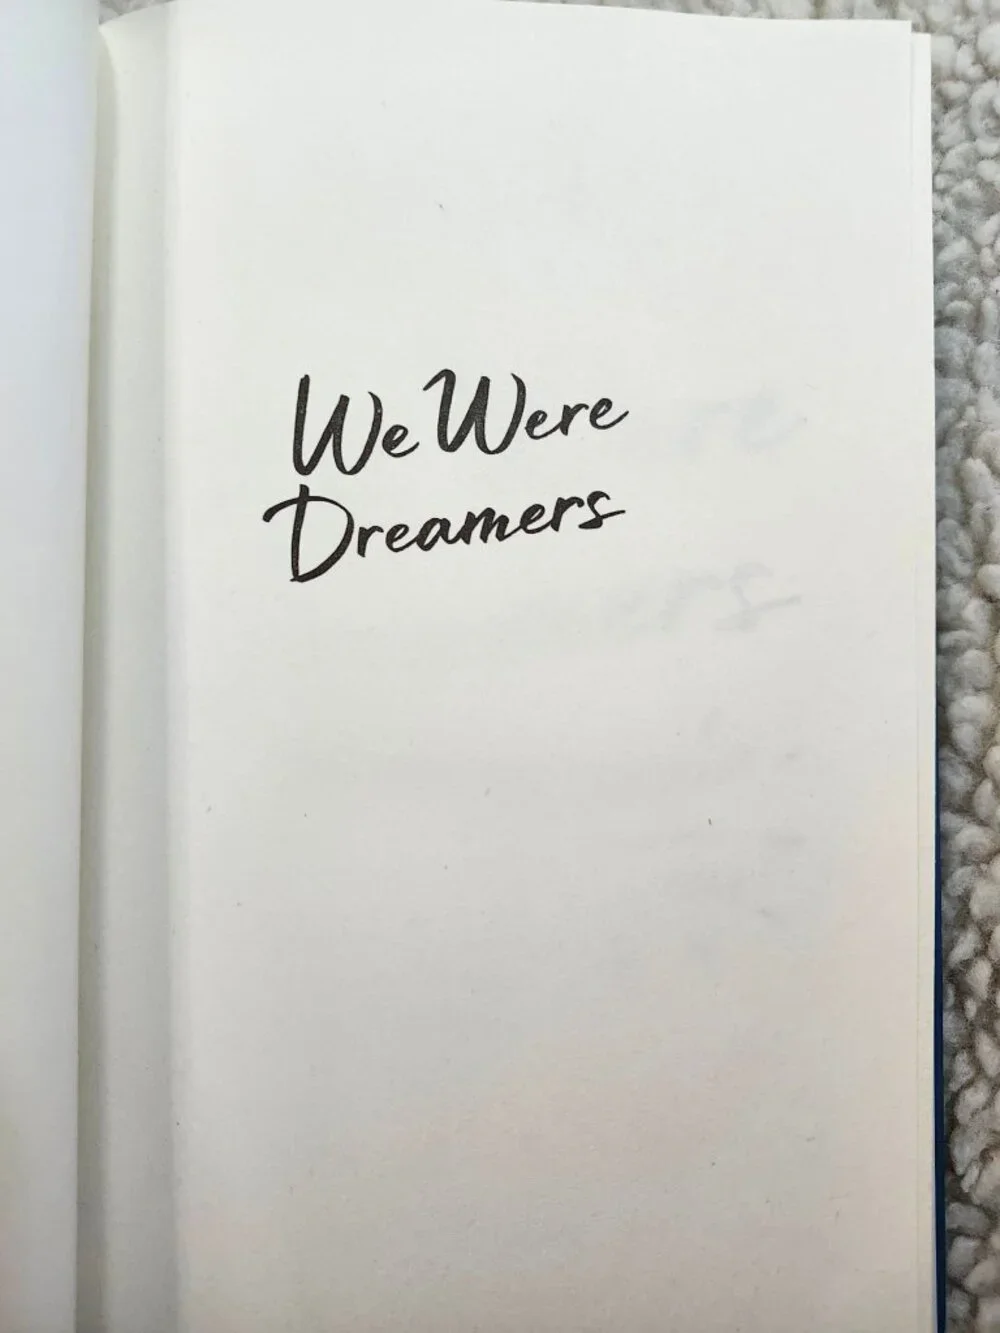 We Were
Dreamers